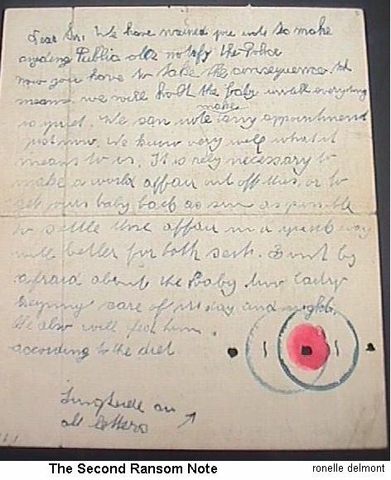 Dear Sir. We have warned you note to make
anyding Public also notify the Police
now you have to take the consequences. ths
means we will holt the baby untill everyding
is quiet. We can note make any appointment
just now. We know very well what it
means to us. It is rely necessary to
make a world affair out off this, or to
get yours baby back as sun as possible
to settle those affair in a quick way
will better for both seits. Dont by
afraid about the Baby two ladys
keeping care of its day and night.
We also will feed him
according to the diet
Singtuere on
all letters
The Second Ransom Note
ronelle delmont